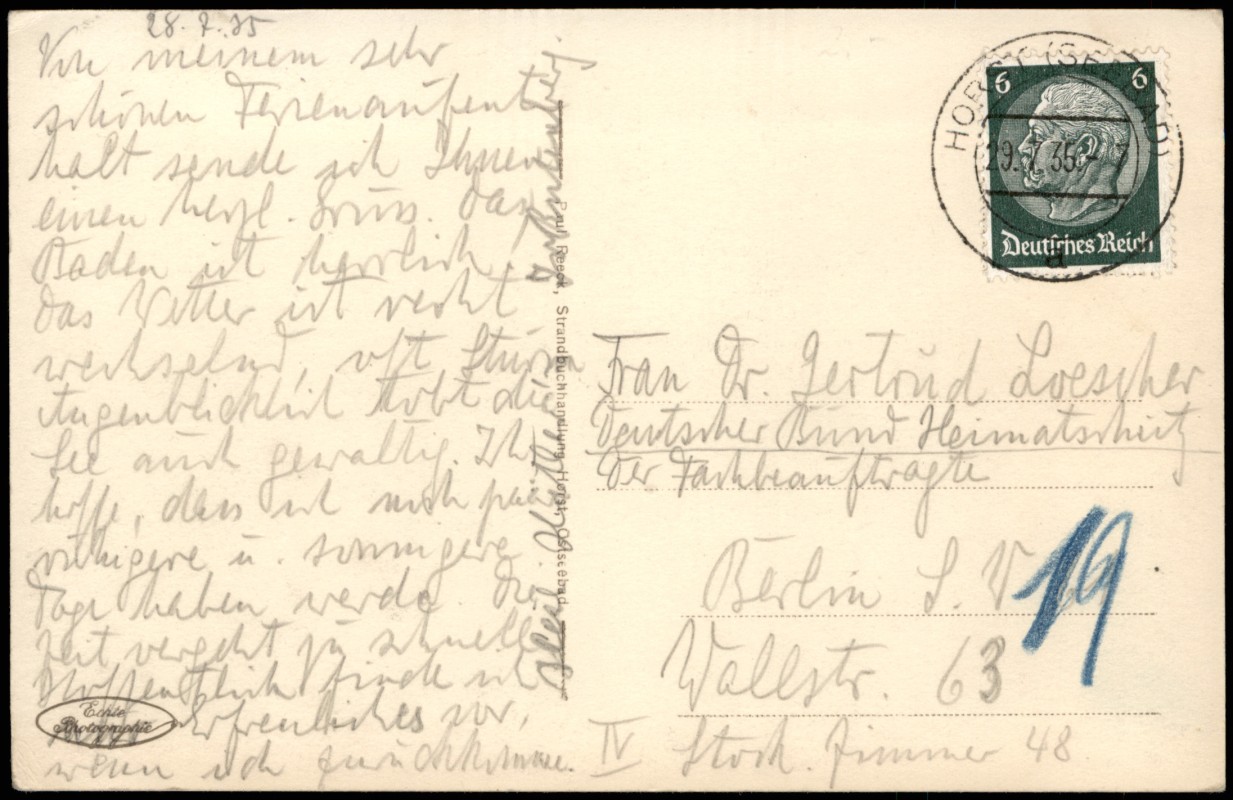 28.7.35
Von meinem sehr
schönen Ferienaufent
halt sende ich Ihnen
einen herzl. Gruss. Das
Baden ist herrlich!
Das Wetter ist recht
wechselnd, oft Sturm
Augenblicklich tobt die
See auch gewaltig. Ich
hoffe, dass ich noch paar
ruhigere u. sonnigere
Tage haben werde. Die
Zeit vergeht zu schnell.
Hoffentlich finde ich
Erfreuliches vor,
wenn ich zurückkomme.
Echte
Photographie
Paul Reeck, Strandbuchhandlung, Horst, Ostseebad
HORST (SEEBAD)
29.7.35.-7
a
6 6
Deutsches Reich
Frau Dr. Gertrud Loescher
Deutscher Bund Heimatschutz
Der Fachbeauftragte
Berlin S.
19
Wallstr. 63
IV Stock. Zimmer 48